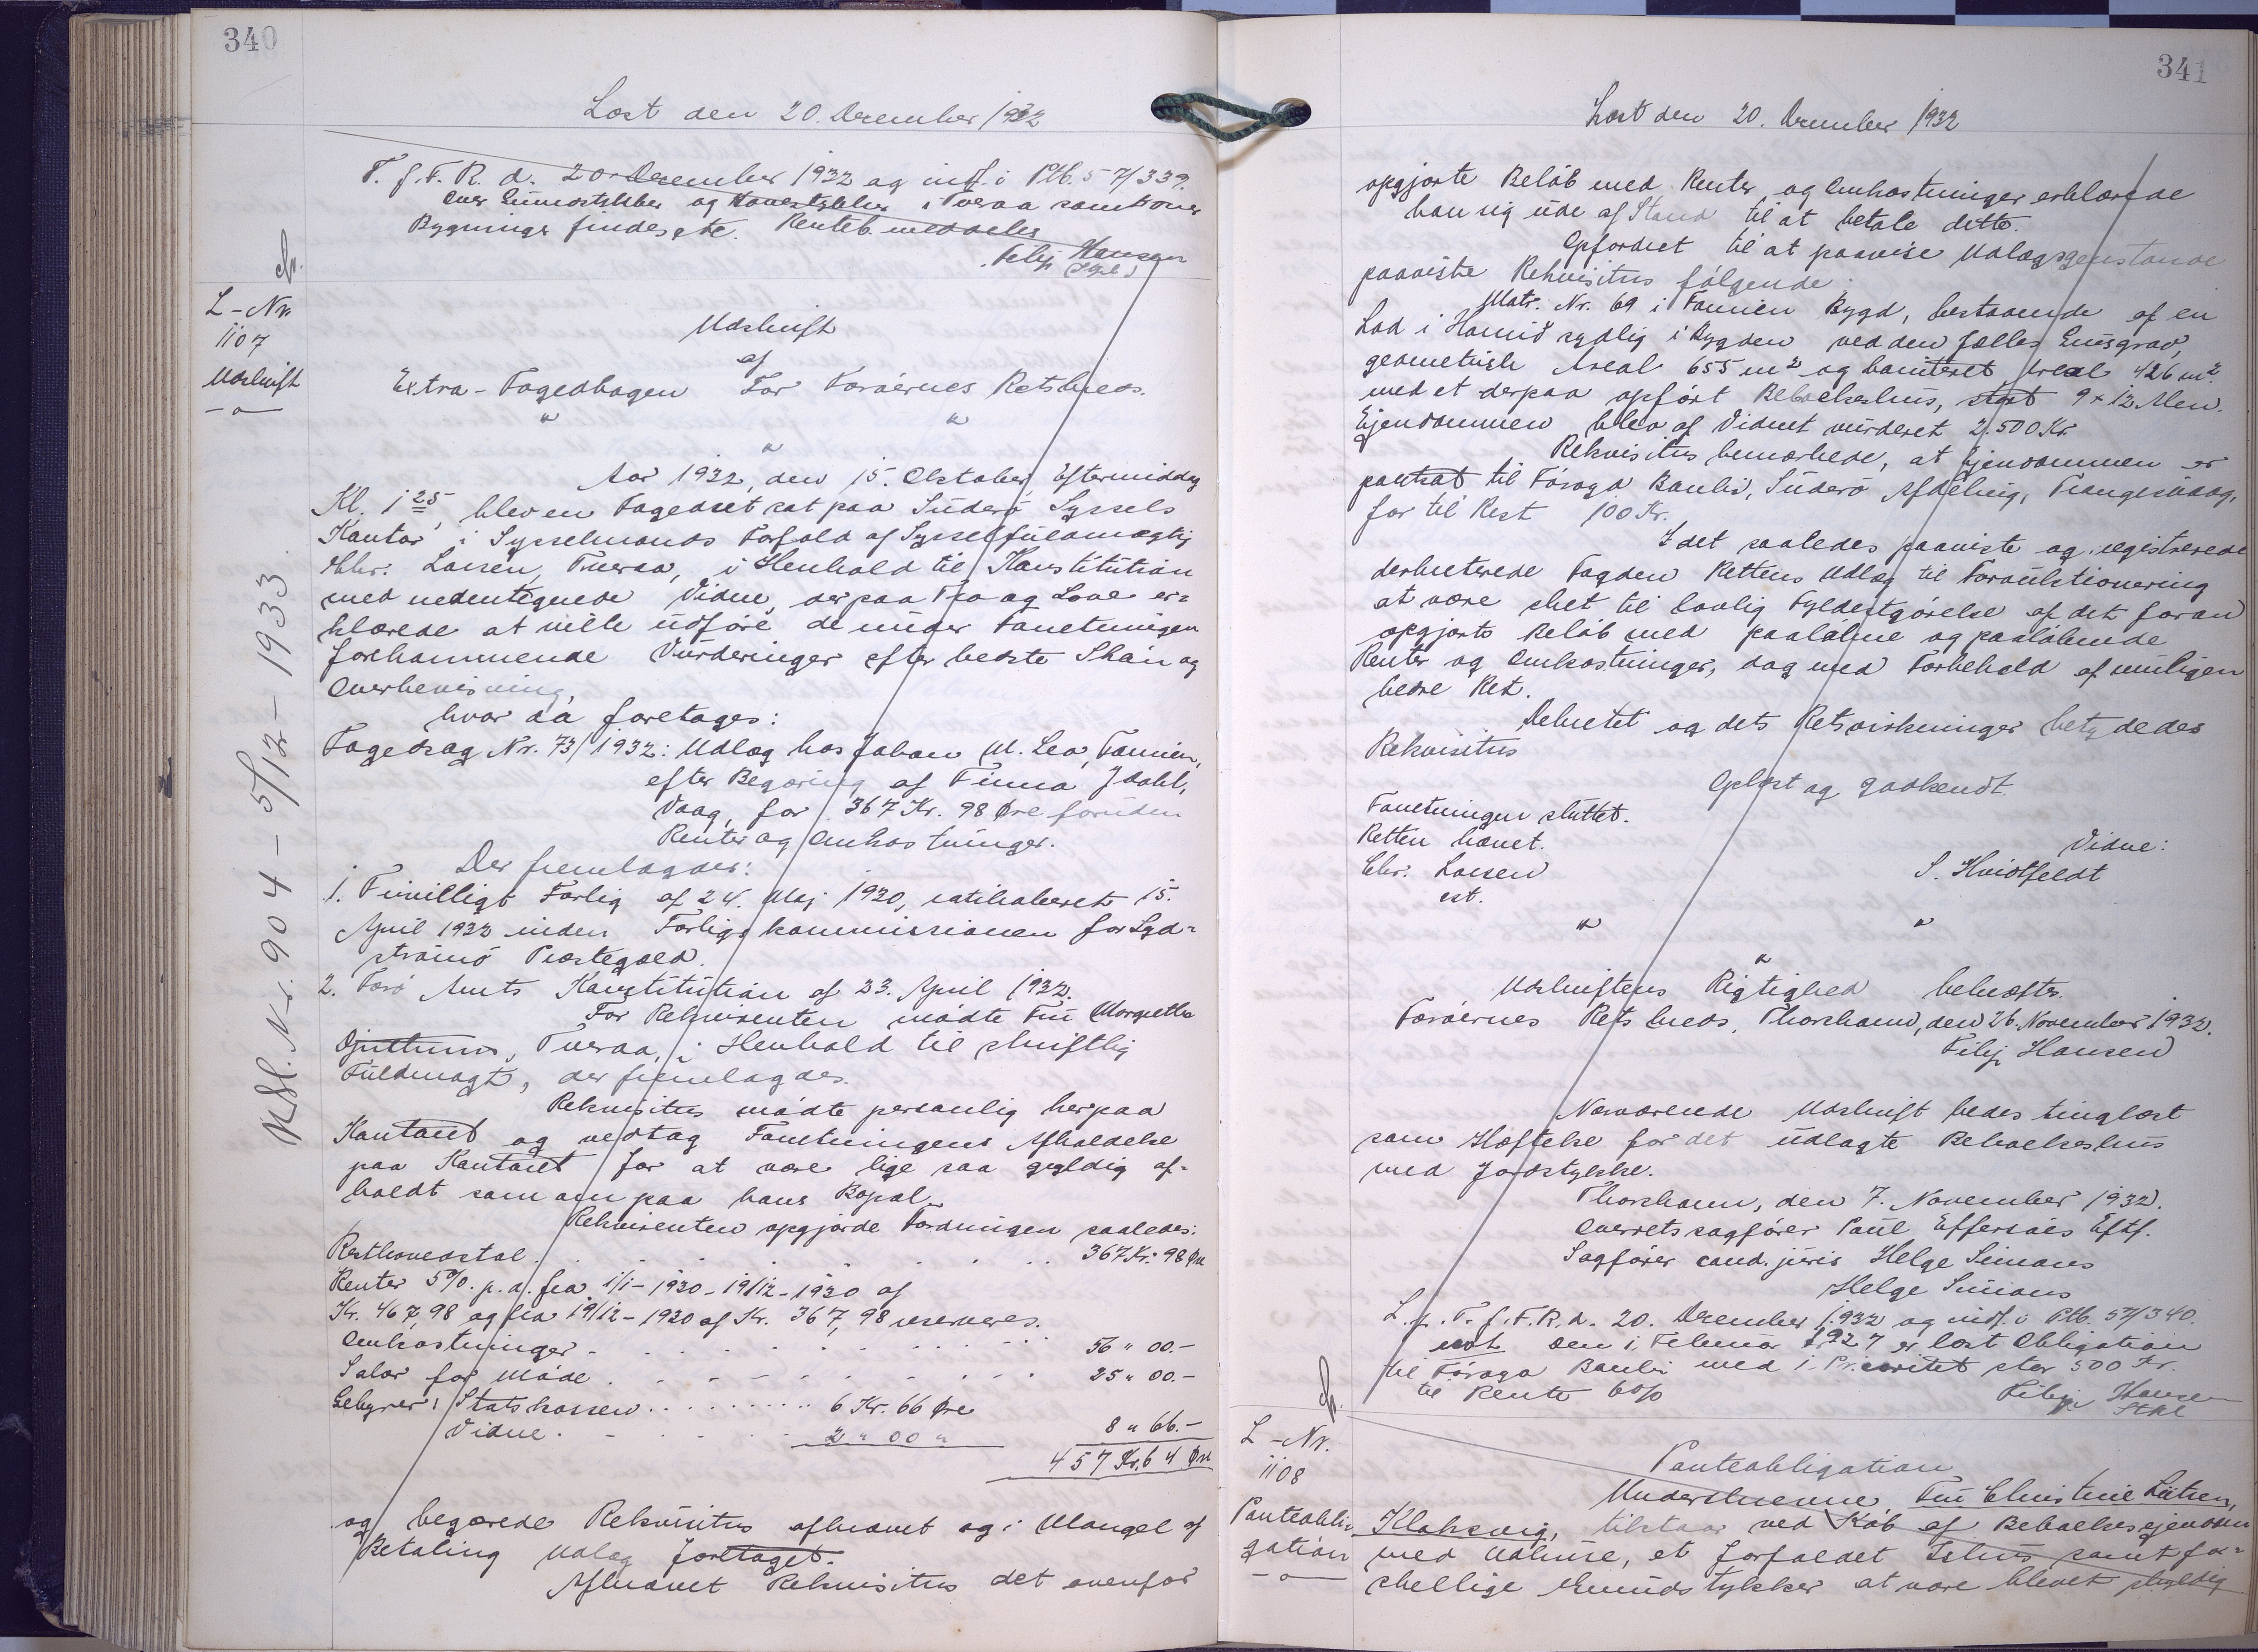 340
Læst den 20. December 1932
T. f. F. R. d. 20 December 1932 og indf. i Ptb. 57/339.
Over Grundstykker og Havestykker i Tveraa samt over
Bygninger findes etc. Renteb. meddeles
Filip Hansen
L-Nr.
1107
Udskrift
Udskrift
af
Extra-Fogedbogen For Færøernes Retskreds.
" "
"
Aar 1932, den 15. Oktober Eftermiddag
Kl. 1 25, blev en Fogedret sat paa Suderø Syssels
Kontor i Sysselmands Forfald af Sysselfuldmægtig
Chr. Larsen, Tveraa, i Henhold til Konstitution
med nedentegnede Vidne, der paa Tro og Love er=
klærede at ville udføre de under Forretningen
forekommende Vurderinger efter bedste Skøn og
Overbevisning,
hvor da foretages:
Fogedsag Nr. 73/1932: Udlæg hos Johan M. Leo, Famien,
efter Begæring af Finna Jdahl,
Vaag, for 367 Kr. 98 Øre foruden
Renter og Omkostninger.
Der fremlagdes:
1. Frivilligt Forlig af 24. Maj 1930, ratihaberet 15.
April 1932 inden Forligskommissionen for Syd=
strømø Præstegæld.
2. Færø Amts Konstitution af 23. April 1932.
For Rekvirenten mødte Fru Margretha
Djurhuus, Tveraa, i Henhold til skriftlig
Fuldmagt, der fremlagdes.
Rekvisitus mødte personlig her paa
Kontoret og vedtog Forretningens Afholdelse
paa Kontoret for at være lige saa gyldig af=
holdt som om paa hans Bopæl.
Rekvirenten opgjorde Fordringen saaledes:
Resthovedstol . . . . . . . 367 Kr. 98 Øre
Renter 5% p. a. fra 1/1-1930-19/12-1930 af
Kr. 467,98 og fra 19/12-1930 af Kr. 367,98 reserveres.
Omkostninger . . . . . . . 56 " 00.-
Salær for Møde . . . . . . . 25 " 00.-
Gebyrer: Statskassen . . . . . . 6 Kr. 66 Øre
Vidne . . . . . 2 " 00 " 8 " 66.-
457 Kr. 64 Øre
og begærede Rekvisitus afkrævet og i Mangel af
Betaling Udlæg foretaget.
Afkrævet Rekvisitus det ovenfor
KSl. Nr. 904 - 5/12 - 1933.
341
Læst den 20. December 1932
opgjorte Beløb med Renter og Omkostninger erklærede
han sig ude af Stand til at betale ditto.
Opfordret til at paavise Udlægsgenstande
paaviste Rekvisitus følgende:
Matr. Nr. 69 i Famien Bygd, bestaaende af en
Lod i Hamið sydlig i Bygden ved den fælles Gusgrov,
geometrisk Areal 655 m² og boniteret Areal 426 m²
med et derpaa opført Beboelseshus, stort 9 x 12 Alen.
Ejendommen blev af Vidnet vurderet 2.500 Kr.
Rekvisitus bemærkede, at Ejendommen er
pantsat til Føroya Banki, Suderø Afdeling, Trangisvaag,
for til Rest 100 Kr.
I det saaledes paaviste og registrerede
dekreterede Fogden Rettens Udlæg til Forauktionering
at være sket til lovlig Fyldestgørelse af det foran
opgjorte Beløb med paaløbne og paaløbende
Renter og Omkostninger, dog med Forbehold af muligen
bedre Ret.
Dekretet og dets Retsvirkninger betydedes
Rekvisitus
Oplæst og godkendt.
Forretningen sluttet.
Retten hævet.
Vidne:
Chr. Larsen
S. Hvidtfeldt
cst.
" "
"
Udskriftens Rigtighed bekræftes.
Færøernes Retskreds, Thorshavn, den 26. November 1932.
Filip Hansen
Nærværende Udskrift bedes tinglæst
som Hæftelse for det udlagte Beboelseshus
med Jordstykke.
Thorshavn, den 7. November 1932.
Overretssagfører Poul Effersøes Eftf.
Sagfører cand. juris Helge Simons
Helge Simons
L. p. T. f. F. R. d. 20. December 1932 og indf. i Ptb. 57/340.
Den 1. Februar 1927 er læst Obligation
til Føroya Banki med 1. Prioritet stor 500 Kr.
til Rente 6%
Filip Hansen
L-Nr.
1108
Panteobli=
gation
Panteobligation
Underskrevne, Fru Christine Lützen,
Klaksvig, tilstaar ved Køb af Beboelsesejendom
med Udhuse, et forfaldet Ishus samt for=
skellige Grundstykker at være blevet skyldig